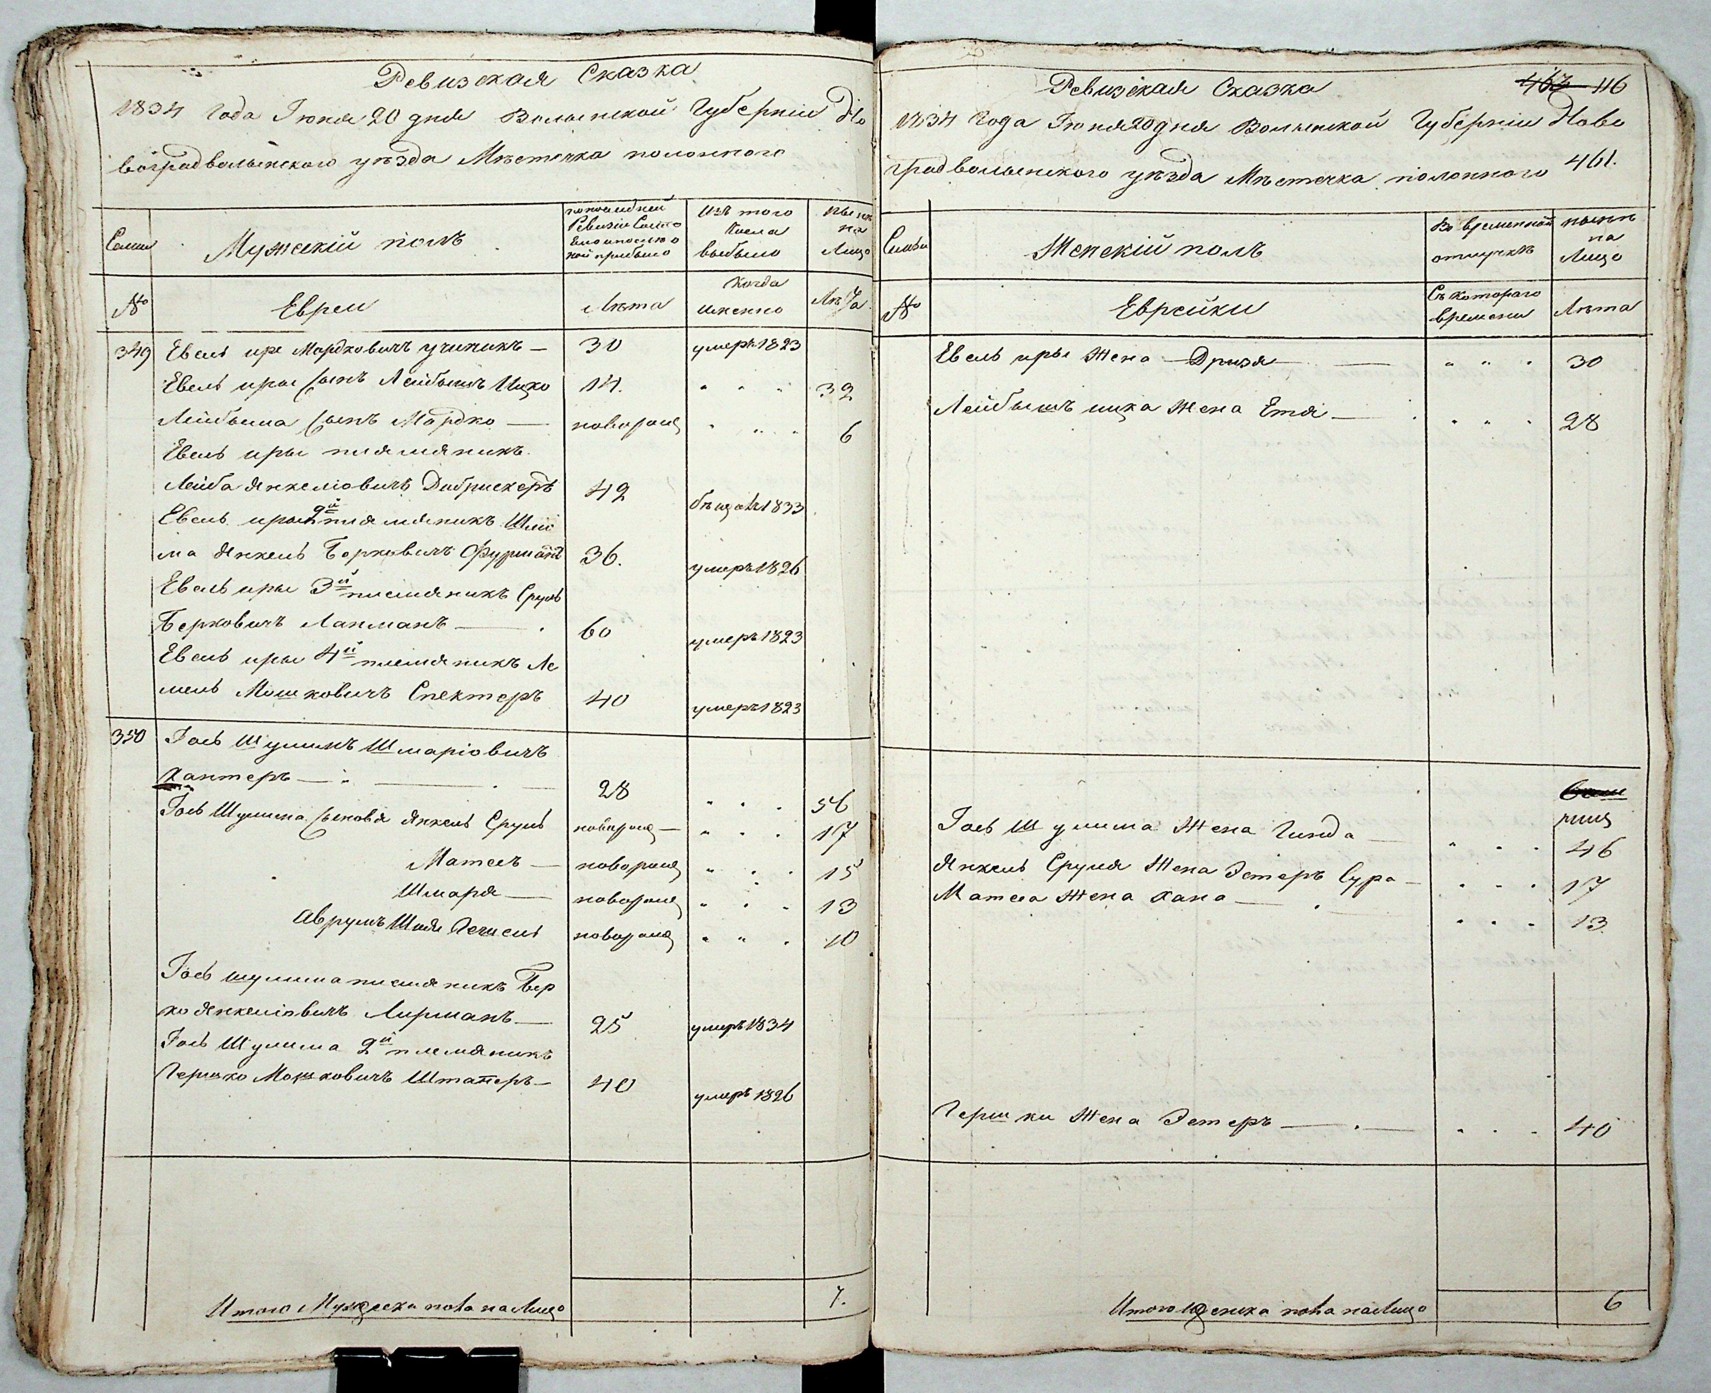 Ревизская Сказка
1834 Года Іюня 20 дня Волынской Губерніи Но
воградволынского уѣзда Мѣстечка полонного
Семьи
Мужескій полъ
по последней
Ревизіи
Изъ того
Числа
выбыло
Нынѣ
на
Лицо
№
Евреи
Лѣта
Когда
именно
Лѣта
349 Евель иры Мордковичъ ученикъ — 30 умеръ 1823
Евель иры Сынъ Лейбышъ Ицко 14. 32
Лейбыша Сынъ Мордко — новорожд 6
Евель иры племяникъ
Лейба Янкеліовичъ 42 1833
Евель иры 2й племяникъ Шлио
ма Янкель Берковичъ Фурманъ 36. умеръ 1826
Евель иры 3й племяникъ Сруль
Берковичъ Лапманъ — 60 умеръ 1823
Евель иры 4й племяникъ Ле
мель Мошковичъ Спекторъ 40 умеръ 1823
350 Іось Шулимъ Шмаріовичъ
Кантеръ — 28 56
Іось Шулима Сыновья Янкель Сруль новорожд — 17
Матес — новорожд 15
Шмаря — новорожд 13
Аврумъ Шая новорожд 10
Іось шулима племяникъ Бер
ко Янкеліовичъ Лирманъ — 25 умеръ 1834
Іось Шулима 2й племяникъ
Гершко Мошковичъ — 40 умеръ 1826
Итого Мужеска пола на Лицо 7.
Ревизская Сказка
463 116
1834 Года Іюня 20 дня Волынской Губерніи Ново
градволынского уѣзда Мѣстечка полонного 461.
Семьи
Женскій полъ
Во временной
отлучкѣ
нынѣ
на
Лицо
№
Еврейки
Съ которого
времени
Лѣта
Евель иры Жена — 30
Лейбышъ ицка Жена Етя — 28
Іось Шулима Жена Гинда — 46
Янкель Сруля Жена Эстеръ Сура — 17
Матеса Жена Хана — 13
Гершки Жена Эстеръ — 40
Итого женска пола на Лицо 6